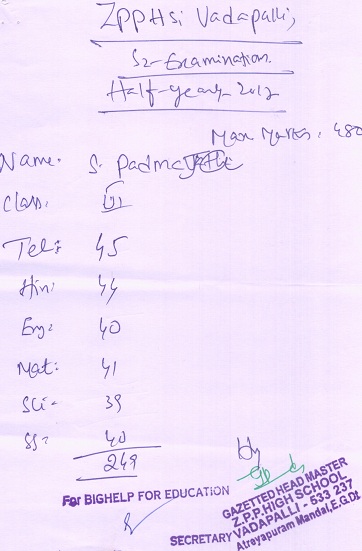 ZPPHS, Vadapalli,
S2-Examination.
Half-yearly-2012
Max Marks: 480
Name: S. Padma
Class: VI
Tel: 45
Hin: 44
Eng: 40
Mat: 41
Sci - 39
SS: 40
249
For BIGHELP FOR EDUCATION
SECRETARY
GAZETTED HEAD MASTER
Z.P.P.HIGH SCHOOL
VADAPALLI - 533 237
Atreyapuram Mandal, E.G.Dt.